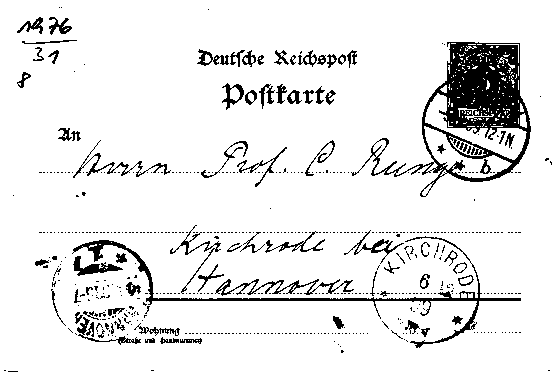 1976
31
8
Deutsche Reichspost
Postkarte
An
Herrn Prof. C. Runge
Kirchrode bei
Hannover
Wohnung
(Straße und Hausnummer)
REICHSPOST
12-1N.
* * b
KIRCHRODE
6
99
HANNOVER